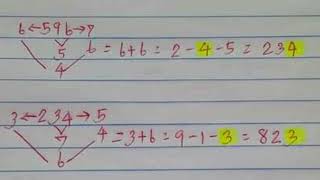 6 ← 596 → 7
5 6 = 6+6 = 2-4-5 = 234
4
3 ← 234 → 5
7 4 = 3+6 = 9-1-3 = 823
6